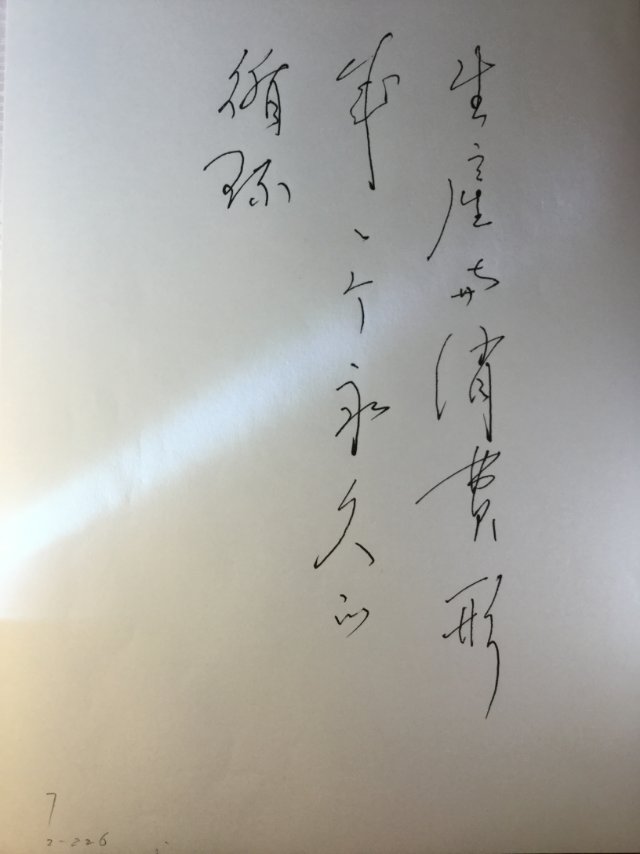 生産与消費形
成一个永久的
循环
7
2-226